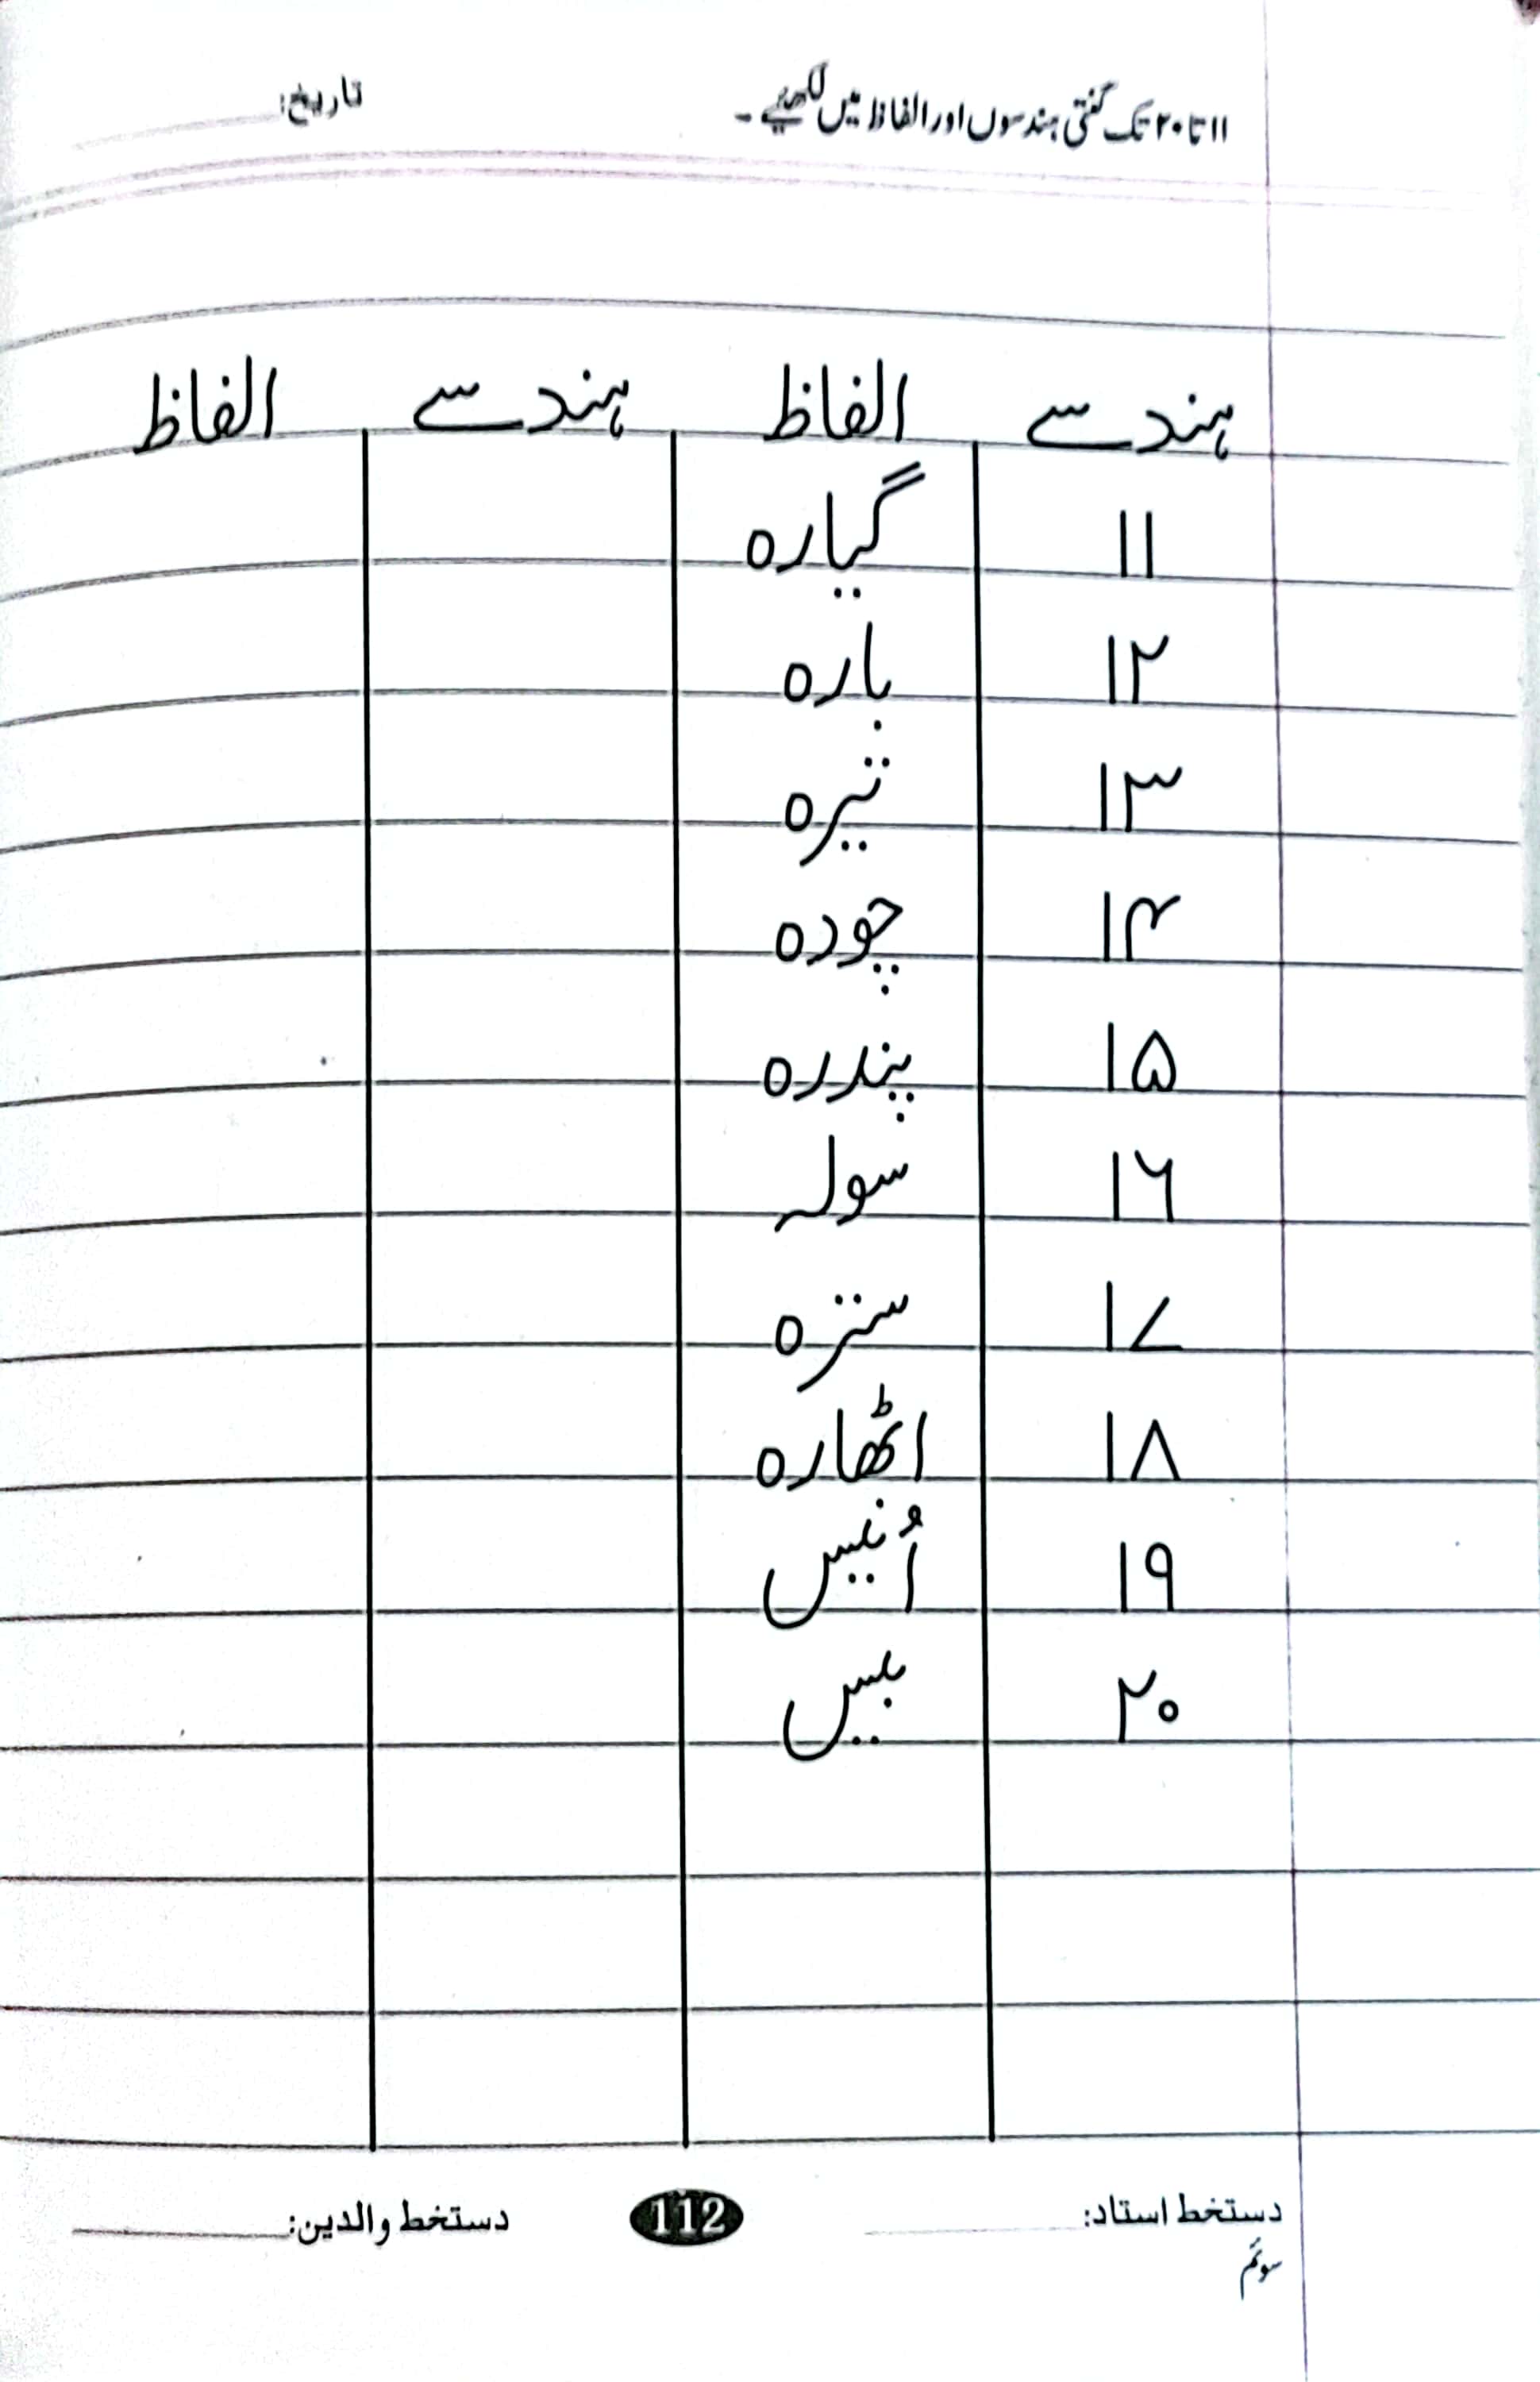 ۱۱ تا ۲۰ تک گنتی ہندسوں اور الفاظ میں لکھیے۔ تاریخ:
ہندسے الفاظ ہندسے الفاظ
۱۱ گیارہ
۱۲ بارہ
۱۳ تیرہ
۱۴ چودہ
۱۵ پندرہ
۱۶ سولہ
۱۷ سترہ
۱۸ اٹھارہ
۱۹ اُنیس
۲۰ بیس
دستخط استاد: 112 دستخط والدین:
سوئم